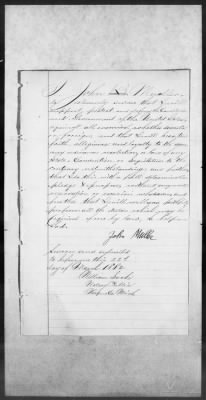 I John
solemnly swear that I will
support, protect and defend the Constitution
and Government of the United States
against all enemies, whether domestic
or foreign, and that I will bear true
faith, allegiance and loyalty to the same
any ordinance, resolution, or law of any
State, Convention or Legislature to the
contrary notwithstanding; and further
that I do this with a full determination
pledge & purpose, without any mental
reservation or evasion whatsoever, and
further that I will well and faithfully
perform all the duties which may be
required of me by law, so help me
God.
John Muller
Sworn and subscribed
to before me this 22d
day of March 1862
William